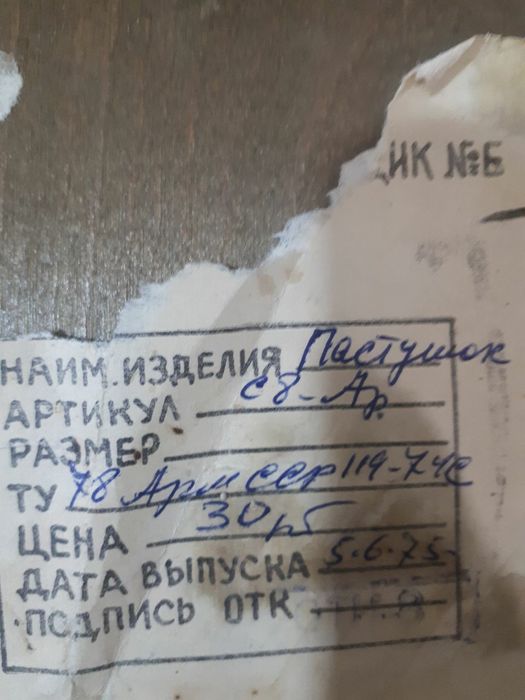 ИК №Б
НАИМ. ИЗДЕЛИЯ Пастушок
АРТИКУЛ св-Ар
РАЗМЕР
ТУ 78 Арм ССР 119-74с
ЦЕНА 30 рб
ДАТА ВЫПУСКА 5.6.75
ПОДПИСЬ ОТК